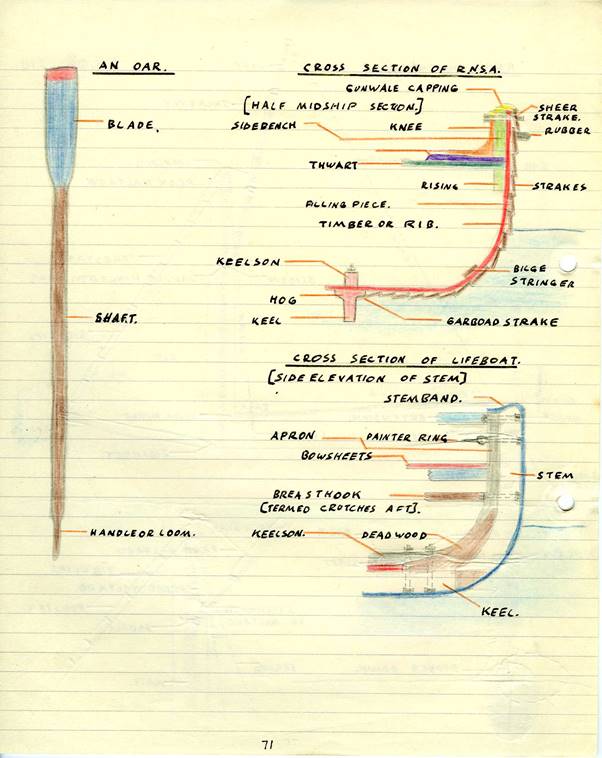 AN OAR.
BLADE.
SHAFT.
HANDLE OR LOOM.
CROSS SECTION OF R.N.S.A.
GUNWALE CAPPING
[HALF MIDSHIP SECTION.]
SHEER
STRAKE.
SIDEBENCH
KNEE
RUBBER
THWART
RISING
STRAKES
FILLING PIECE.
TIMBER OR RIB.
KEELSON
BILGE
STRINGER
HOG
KEEL
GARBOAD STRAKE
CROSS SECTION OF LIFEBOAT.
[SIDE ELEVATION OF STEM]
STEMBAND.
APRON
PAINTER RING
BOWSHEETS
STEM
BREASTHOOK
[TERMED CROTCHES AFT].
KEELSON.
DEADWOOD
KEEL.
71